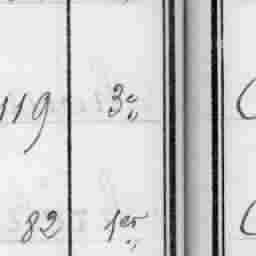 119 3e
82 1er